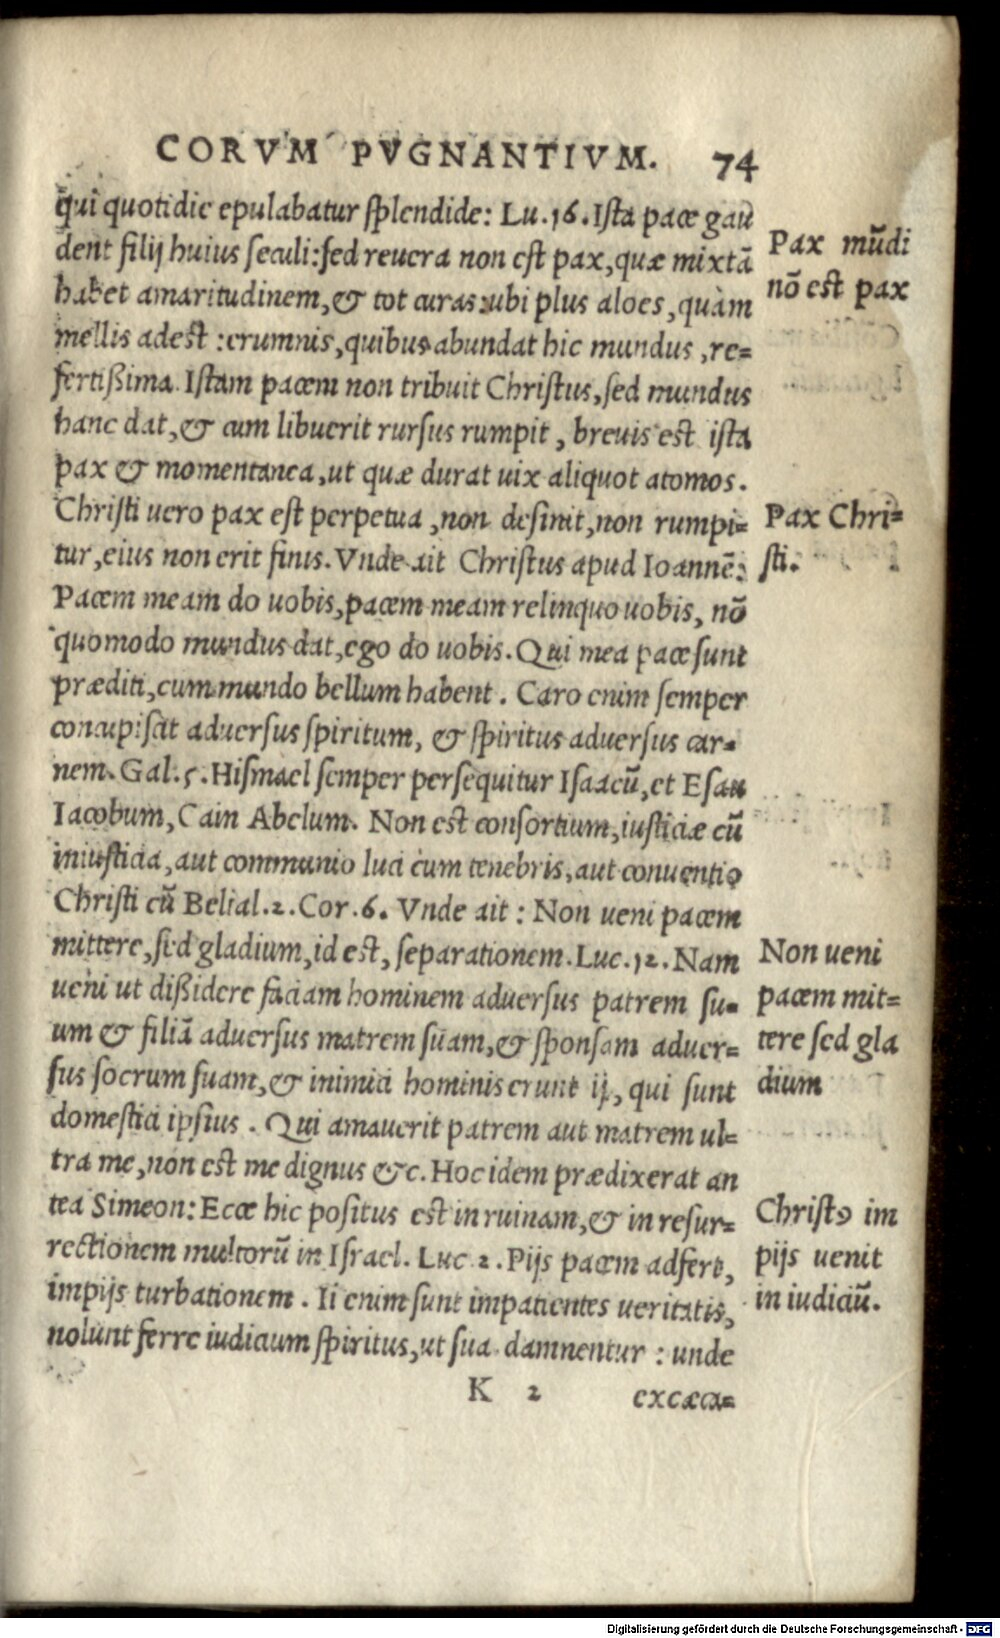 CORVM PVGNANTIVM. 74
qui quotidie epulabatur splendide: Lu.16. Ista pace gau
dent filij huius seculi: sed reuera non est pax, quæ mixtā
habet amaritudinem, & tot curas: ubi plus aloes, quàm
mellis adest: erumnis, quibus abundat hic mundus, re=
fertißima. Istam pacem non tribuit Christus, sed mundus
hanc dat, & cum libuerit rursus rumpit, breuis est ista
pax & momentanea, ut quæ durat uix aliquot atomos.
Christi uero pax est perpetua, non desinit, non rumpi=
tur, eius non erit finis. Vnde ait Christus apud Ioannē:
Pacem meam do uobis, pacem meam relinquo uobis, nō
quomodo mundus dat, ego do uobis. Qui mea pace sunt
præditi, cum mundo bellum habent. Caro enim semper
concupiscit aduersus spiritum, & spiritus aduersus car=
nem. Gal.5. Hismael semper persequitur Isaacū, et Esau
Iacobum, Cain Abelum. Non est consortium, iusticiæ cū
iniusticia, aut communio luci cum tenebris, aut conuentio
Christi cū Belial.2. Cor.6. Vnde ait: Non ueni pacem
mittere, sed gladium, id est, separationem. Luc.12. Nam
ueni ut dißidere faciam hominem aduersus patrem su=
um & filiā aduersus matrem suam, & sponsam aduer=
sus socrum suam, & inimici hominis erunt ij, qui sunt
domestici ipsius. Qui amauerit patrem aut matrem ul=
tra me, non est me dignus &c. Hoc idem prædixerat an
tea Simeon: Ecce hic positus est in ruinam, & in resur=
rectionem multorū in Israel. Luc.2. Pijs pacem adfert,
impijs turbationem. Ii enim sunt impatientes ueritatis,
nolunt ferre iudicium spiritus, ut sua damnentur: unde
K 2 excæca=
Pax mūdi
nō est pax
Pax Chri=
sti.
Non ueni
pacem mit=
tere sed gla
dium
Christꝯ im
pijs uenit
in iudiciū.
Digitalisierung gefördert durch die Deutsche Forschungsgemeinschaft - DFG